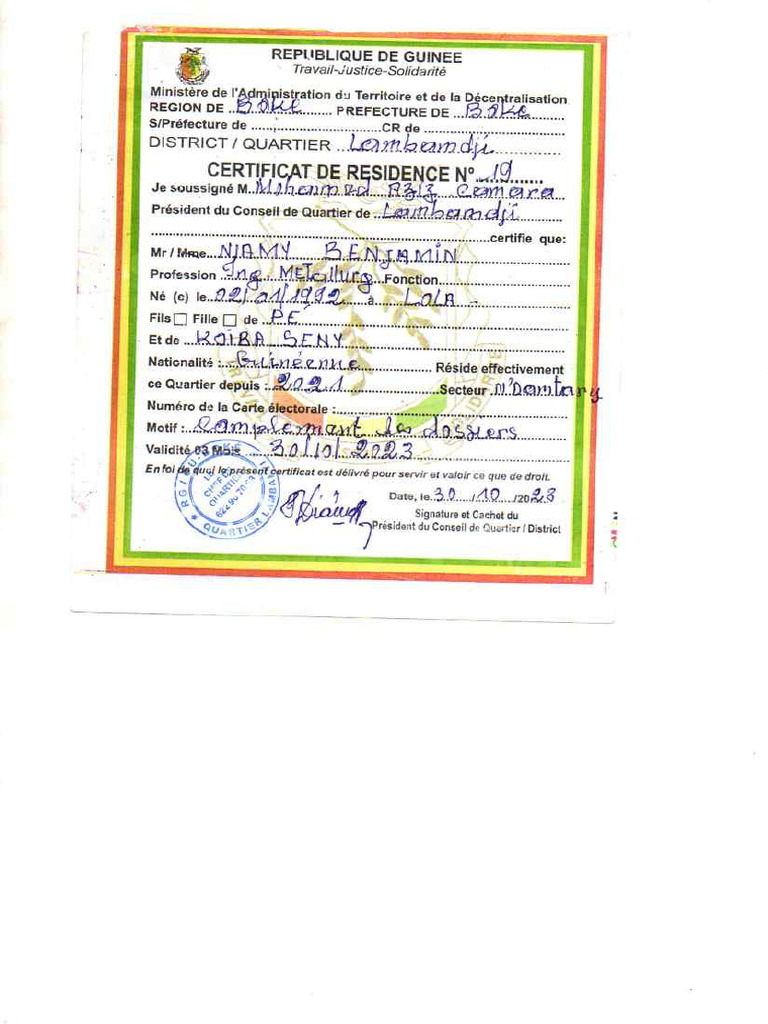 REPUBLIQUE DE GUINEE
Travail-Justice-Solidarité
Ministère de l'Administration du Territoire et de la Décentralisation
REGION DE BOKE PREFECTURE DE BOKE
S/Préfecture de ........ CR de ........
DISTRICT / QUARTIER Lambamdji
CERTIFICAT DE RESIDENCE N° 19
Je soussigné M. Mohammed AZIZ Camara
Président du Conseil de Quartier de Lambamdji
certifie que:
Mr / Mme NIAMY BENJAMIN
Profession Ing METallurg Fonction
Né (e) le 02/01/1992 à LOLA -
Fils Fille de PÉ
Et de KOIBA SENY
Nationalité : Guinéenne Réside effectivement
ce Quartier depuis : 2021 Secteur N'Damtary
Numéro de la Carte électorale :
Motif : Complemant des dossiers
Validité 03 Mois 30/10/2023
En foi de quoi le présent certificat est délivré pour servir et valoir ce que de droit.
Date, le 30 /10 /2023
Signature et Cachet du
Président du Conseil de Quartier / District
QUARTIER LAMBA